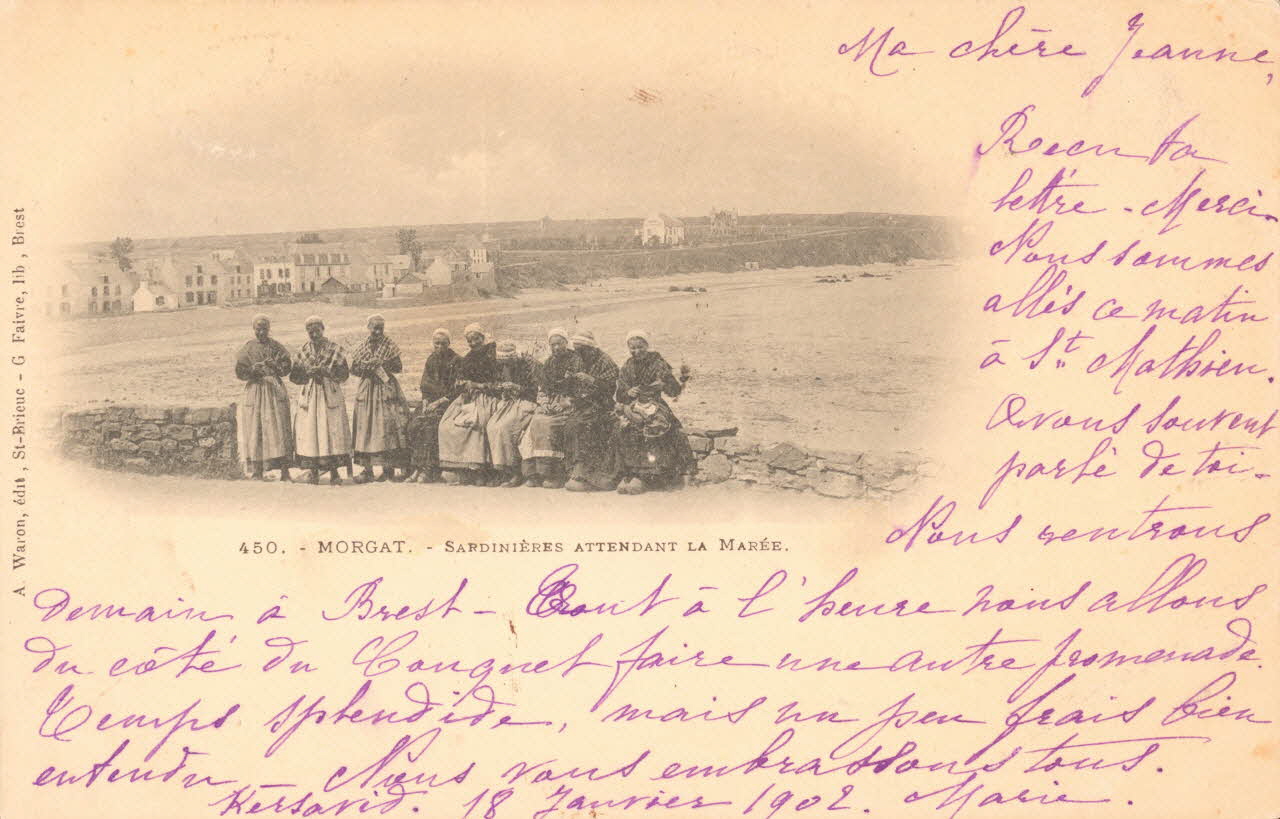 Ma chère Jeanne,
Recu ta
lettre - Merci -
Nous sommes
allés ce matin
à St. Mathieu.
Avons souvent
parlé de toi -
Nous rentrons
demain à Brest - Tout à l'heure nous allons
du côté du Conquet faire une autre promenade.
Temps splendide, mais un peu frais bien
entendu - Nous vous embrassons tous.
Kersavid. 18 Janvier 1902. Marie.
450. - MORGAT. - SARDINIÈRES ATTENDANT LA MARÉE.
A. Waron, édit, St-Brieuc - G Faivre, lib, Brest